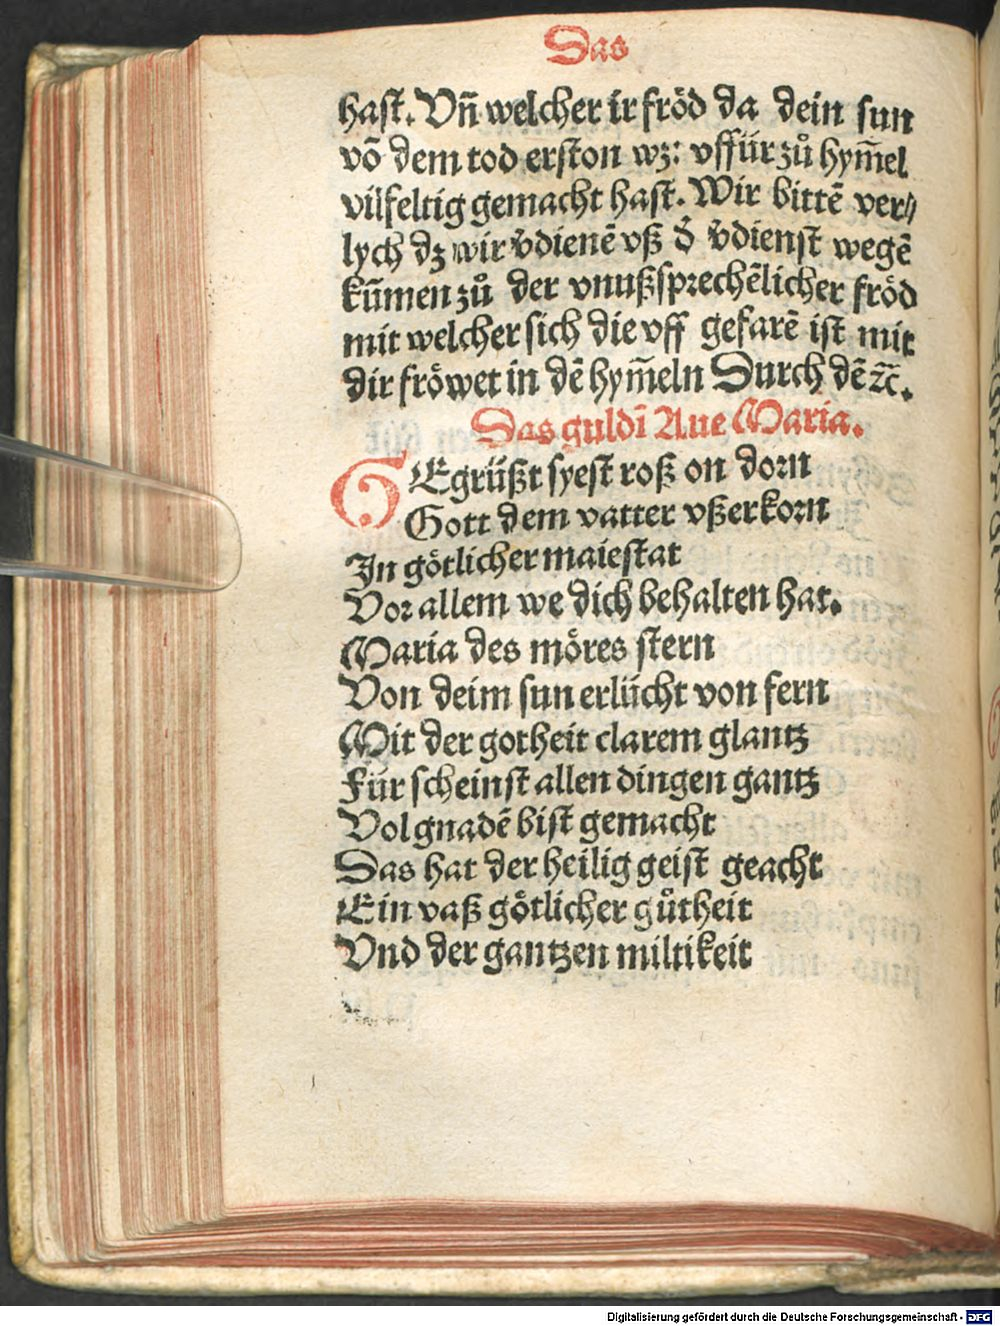 Das
hast. Vn̄ welcher ir fröd da dein sun
vō dem tod erston wz: vffür zů hym̄el
vilfeltig gemacht hast. Wir bittē ver⸗
lych dz wir v̄dienē vß d̄ v̄dienst wegē
kūmen zů der vnußsprechēlicher fröd
mit welcher sich die vff gefarē ist mit
dir fröwet in dē hym̄eln Durch dē ⁊c̄.
Das guldī Aue Maria.
GEgrüßt syest roß on dorn
Gott dem vatter vßerkorn
In götlicher maiestat
Vor allem we dich behalten hat.
Maria des möres stern
Von deim sun erlücht von fern
Mit der gotheit clarem glantz
Für scheinst allen dingen gantz
Vol gnadē bist gemacht
Das hat der heilig geist geacht
Ein vaß götlicher gůtheit
Vnd der gantzen miltikeit
Digitalisierung gefördert durch die Deutsche Forschungsgemeinschaft - DFG